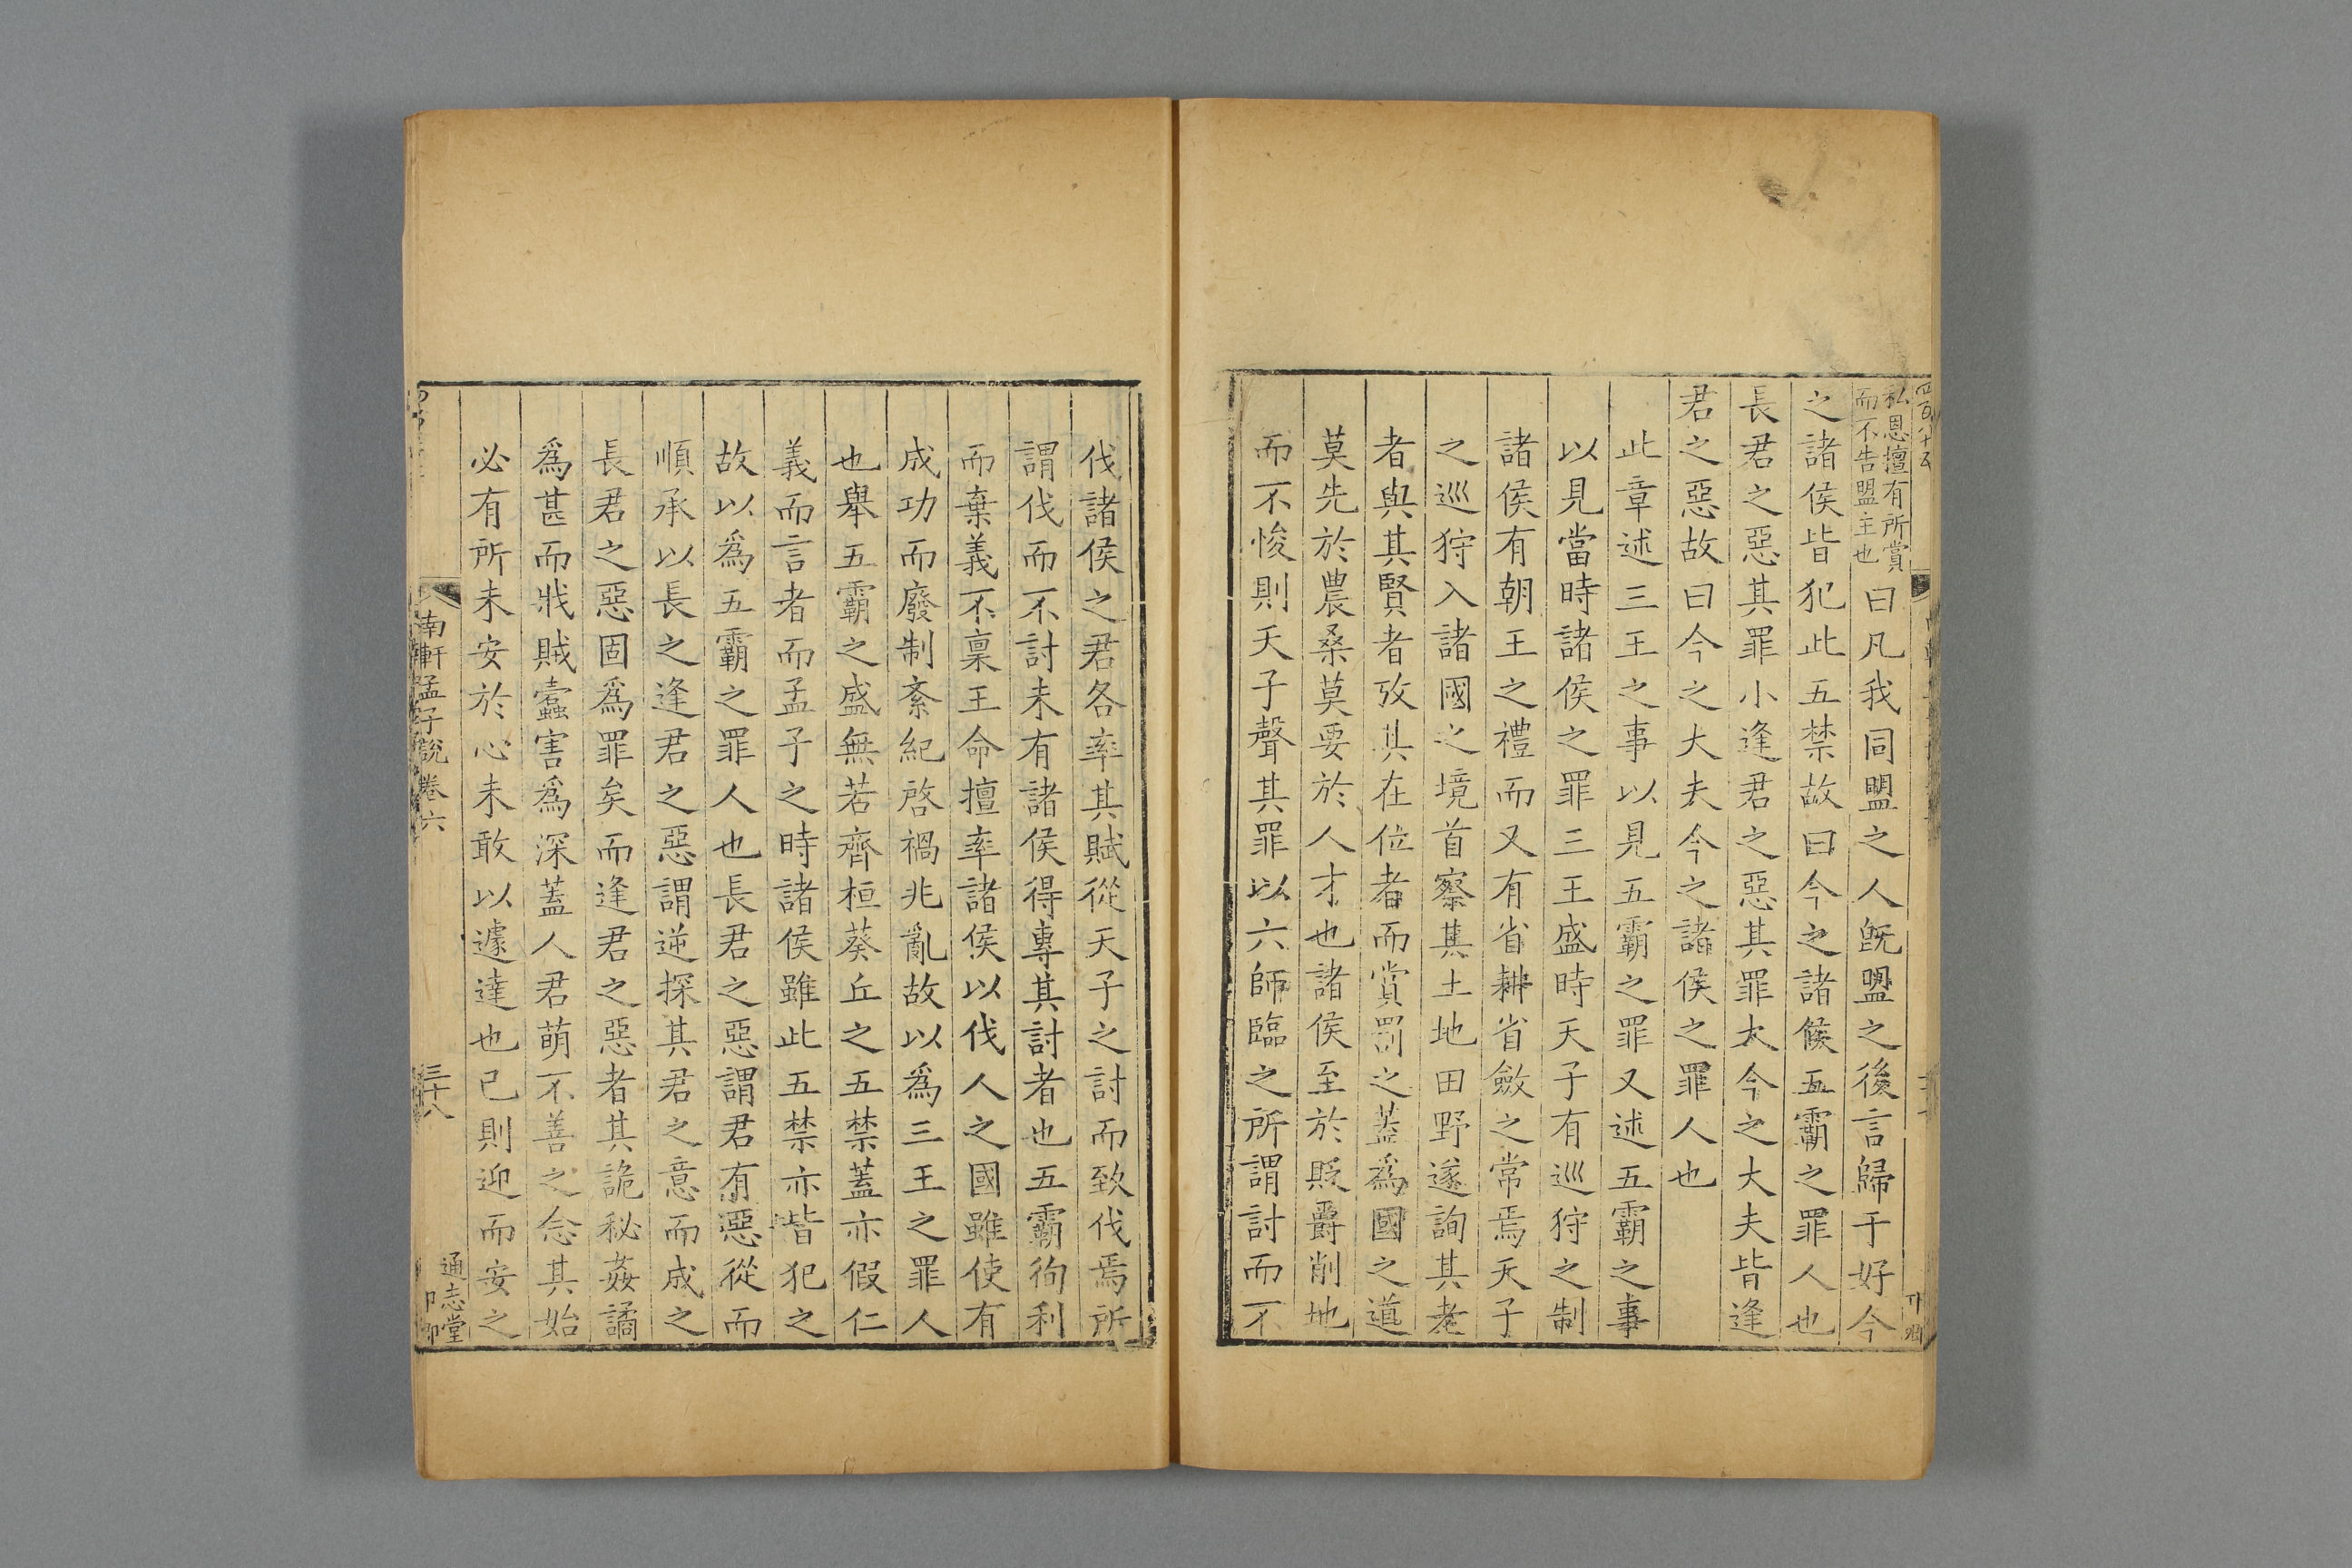 四百八十五
私恩擅有所賞
而不告盟主也
曰凡我同盟之人旣盟之後言歸于好今
之諸侯皆犯此五禁故曰今之諸侯五霸之罪人也
長君之惡其罪小逢君之惡其罪大今之大夫皆逢
君之惡故曰今之大夫今之諸侯之罪人也
此章述三王之事以見五霸之罪又述五霸之事
以見當時諸侯之罪三王盛時天子有巡狩之制
諸侯有朝王之禮而又有省耕省斂之常焉天子
之巡狩入諸國之境首察其土地田野遂詢其老
者與其賢者攷其在位者而賞罰之蓋爲國之道
莫先於農桑莫要於人才也諸侯至於貶爵削地
而不悛則天子聲其罪以六師臨之所謂討而不
伐諸侯之君各率其賦從天子之討而致伐焉所
謂伐而不討未有諸侯得專其討者也五霸徇利
而棄義不稟王命擅率諸侯以伐人之國雖使有
成功而廢制紊紀啓禍兆亂故以爲三王之罪人
也舉五霸之盛無若齊桓葵丘之五禁蓋亦假仁
義而言者而孟子之時諸侯雖此五禁亦皆犯之
故以爲五霸之罪人也長君之惡謂君有惡從而
順承以長之逢君之惡謂逆探其君之意而成之
長君之惡固爲罪矣而逢君之惡者其詭秘姦譎
爲甚而戕賊蠧害爲深蓋人君萌不善之念其始
必有所未安於心未敢以遽達也已則迎而安之
南軒孟子說卷六
三十八
通志堂